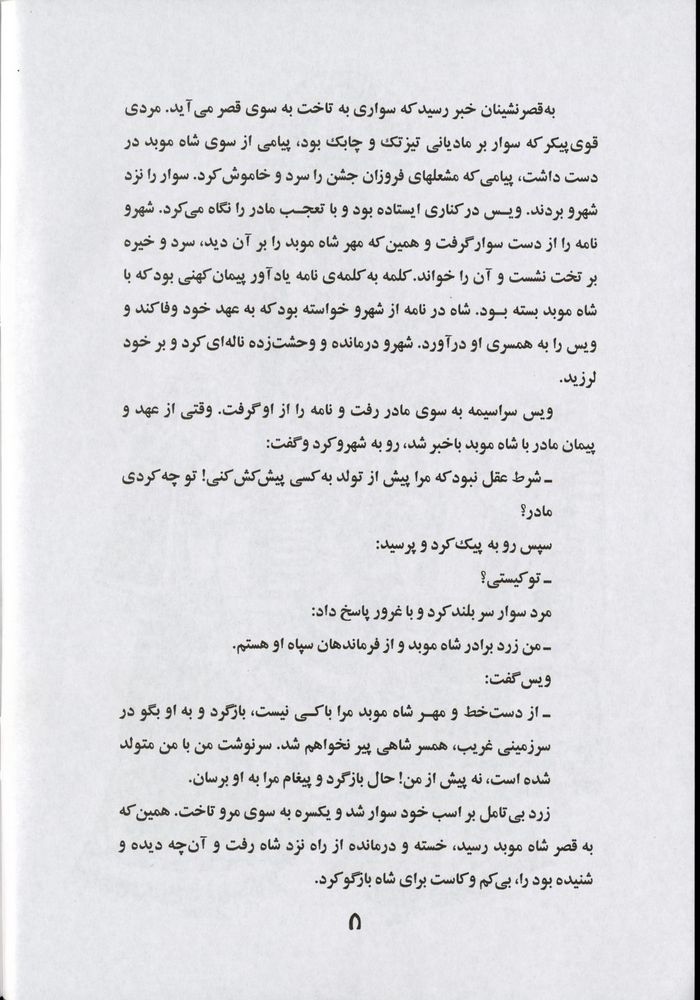 به قصرنشینان خبر رسید که سواری به تاخت به سوی قصر می‌آید. مردی
قوی‌پیکر که سوار بر مادیانی تیزتک و چابک بود، پیامی از سوی شاه موبد در
دست داشت، پیامی که مشعلهای فروزان جشن را سرد و خاموش کرد. سوار را نزد
شهرو بردند. ویس در کناری ایستاده بود و با تعجب مادر را نگاه می‌کرد. شهرو
نامه را از دست سوار گرفت و همین که مهر شاه موبد را بر آن دید، سرد و خیره
بر تخت نشست و آن را خواند. کلمه به کلمه‌ی نامه یادآور پیمان کهنی بود که با
شاه موبد بسته بود. شاه در نامه از شهرو خواسته بود که به عهد خود وفا کند و
ویس را به همسری او درآورد. شهرو درمانده و وحشت‌زده ناله‌ای کرد و بر خود
لرزید.
ویس سراسیمه به سوی مادر رفت و نامه را از او گرفت. وقتی از عهد و
پیمان مادر با شاه موبد باخبر شد، رو به شهرو کرد و گفت:
ـ شرط عقل نبود که مرا پیش از تولد به کسی پیش‌کش کنی! تو چه کردی
مادر؟
سپس رو به پیک کرد و پرسید:
ـ تو کیستی؟
مرد سوار سر بلند کرد و با غرور پاسخ داد:
ـ من زرد برادر شاه موبد و از فرماندهان سپاه او هستم.
ویس گفت:
ـ از دست‌خط و مهر شاه موبد مرا باکی نیست، بازگرد و به او بگو در
سرزمینی غریب، همسر شاهی پیر نخواهم شد. سرنوشت من با من متولد
شده است، نه پیش از من! حال بازگرد و پیغام مرا به او برسان.
زرد بی‌تامل بر اسب خود سوار شد و یکسره به سوی مرو تاخت. همین که
به قصر شاه موبد رسید، خسته و درمانده از راه نزد شاه رفت و آن‌چه دیده و
شنیده بود را، بی‌کم و کاست برای شاه بازگو کرد.
۵